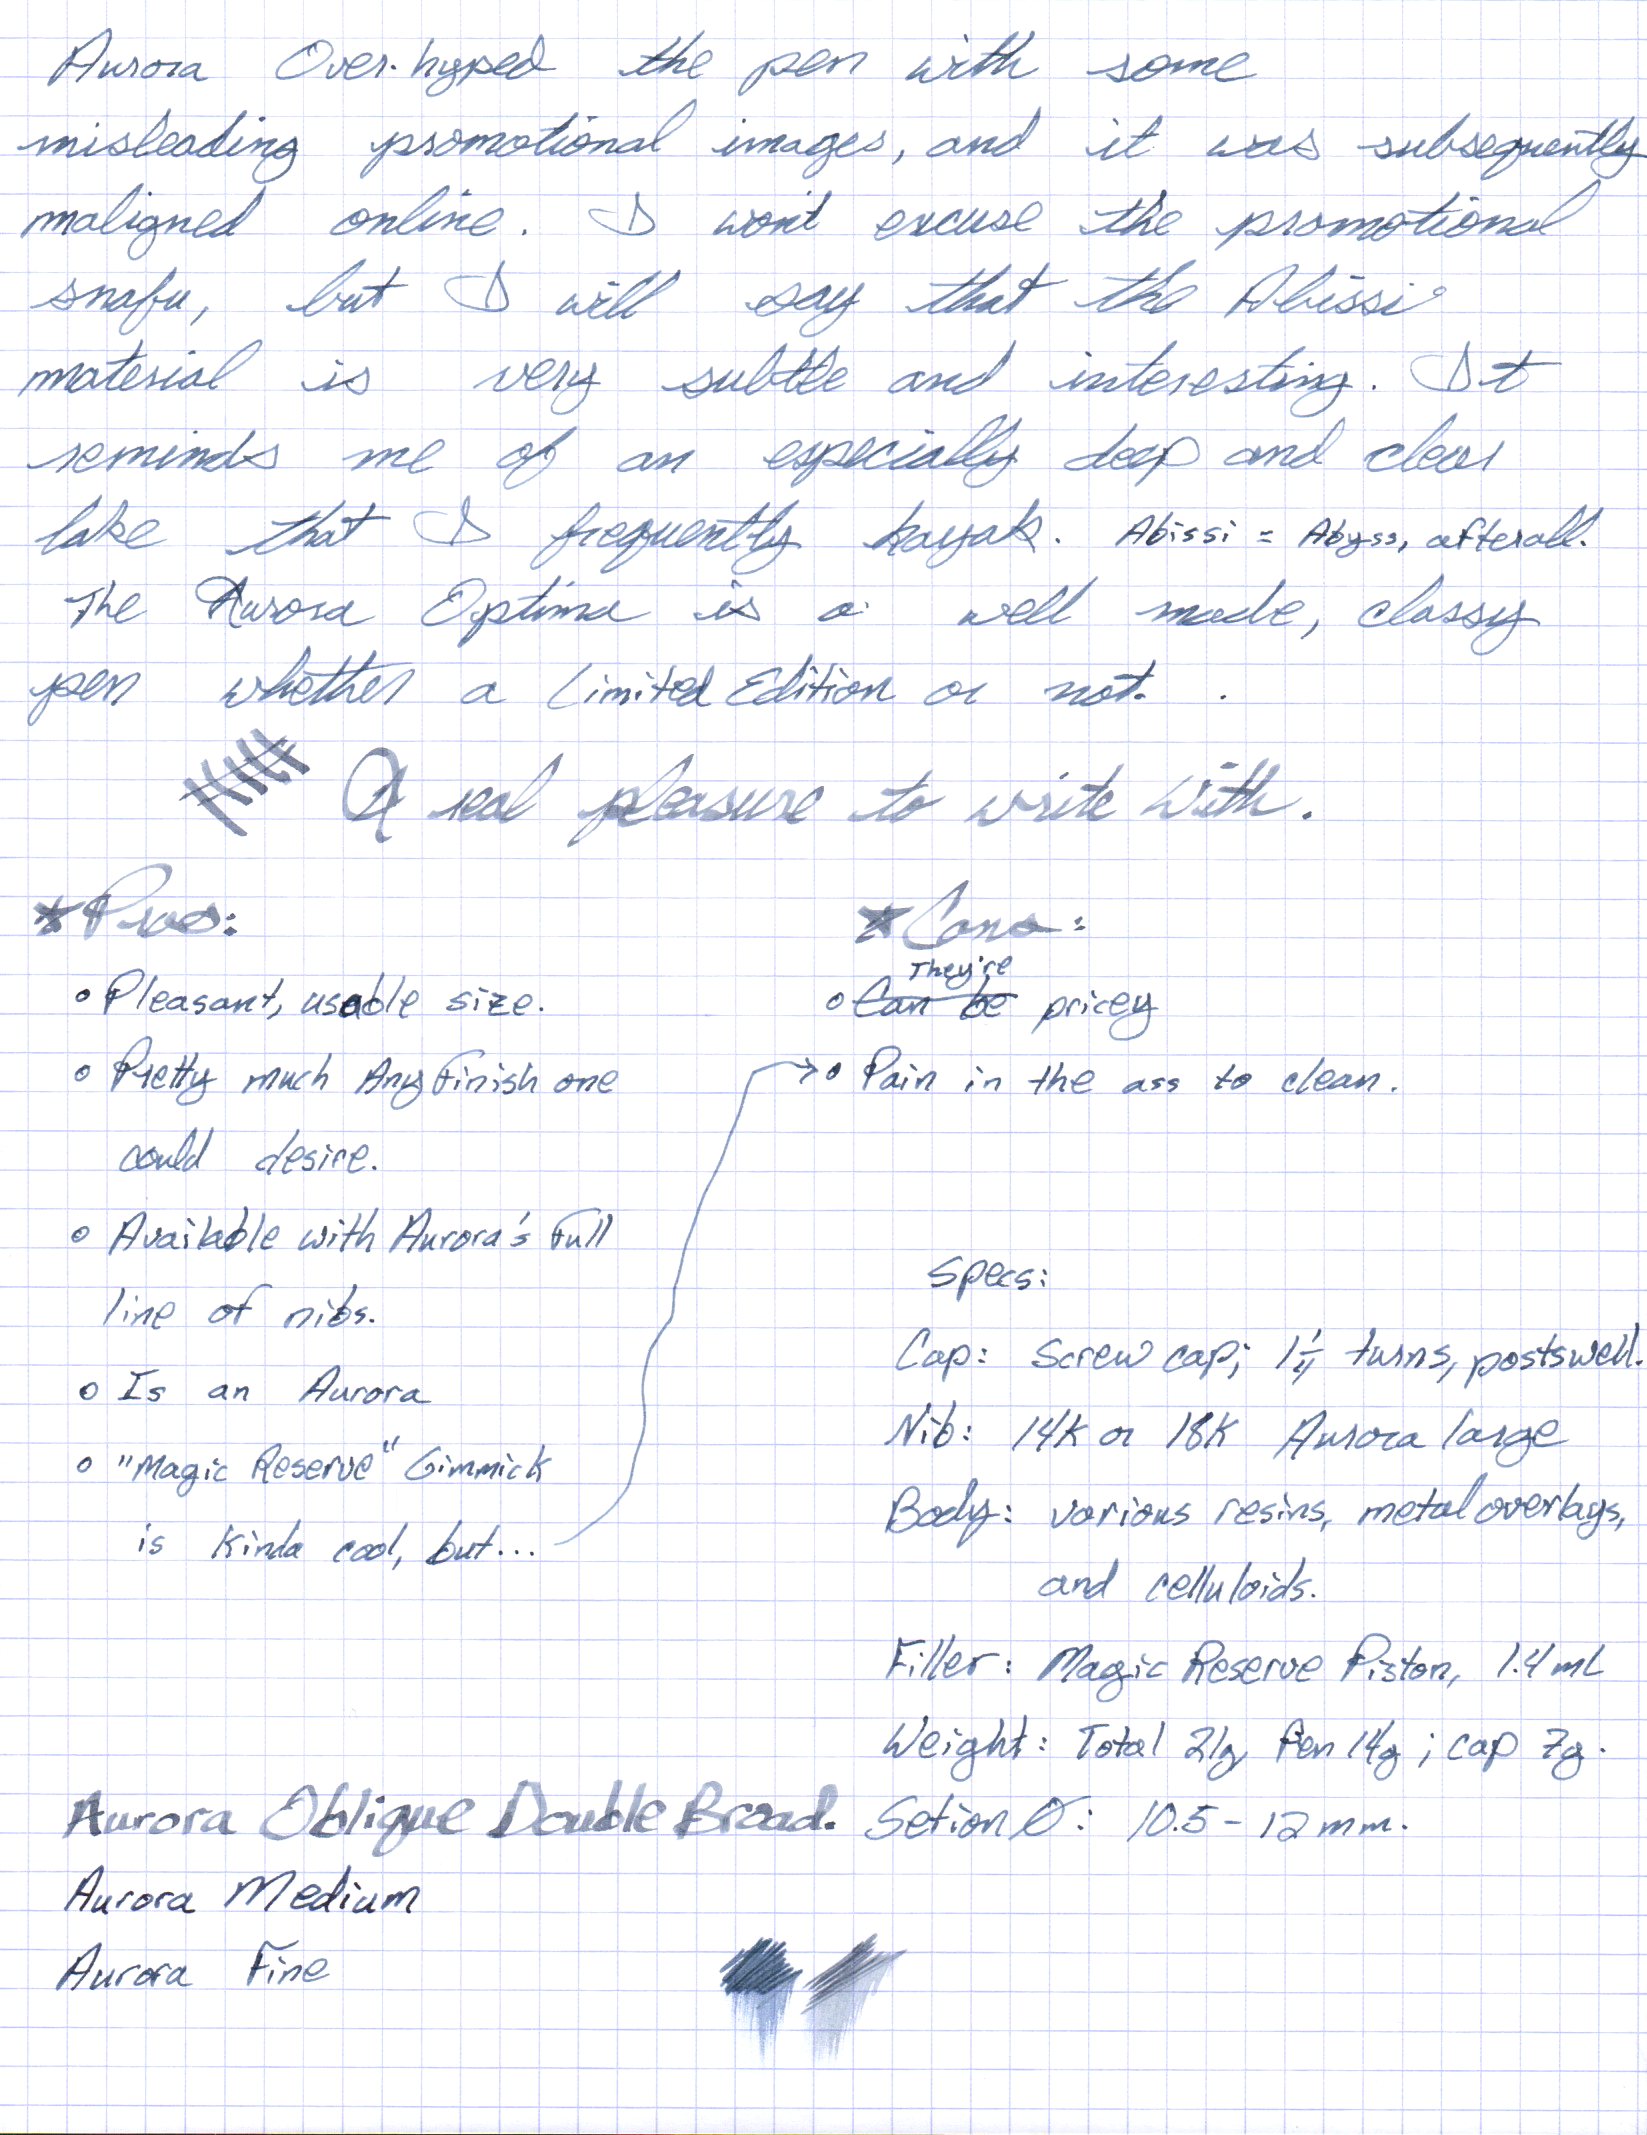 Aurora Over-hyped the pen with some
misleading promotional images, and it was subsequently
maligned online. I won't excuse the promotional
snafu, but I will say that the Abissi
material is very subtle and interesting. It
reminds me of an especially deep and clear
lake that I frequently kayak. Abissi = Abyss, afterall.
The Aurora Optima is a well made, classy
pen whether a Limited Edition or not.
A real pleasure to write with.
* Pros:
◦ Pleasant, usable size.
◦ Pretty much Any finish one
could desire.
◦ Available with Aurora's full
line of nibs.
◦ Is an Aurora
◦ "Magic Reserve" Gimmick
is kinda cool, but...
* Cons:
They're
◦ Can be pricey
◦ Pain in the ass to clean.
Specs:
Cap: Screw cap; 1 1/4 turns, posts well.
Nib: 14K or 18K Aurora large
Body: various resins, metal overlays,
and celluloids.
Filler: Magic Reserve Piston, 1.4 mL
Weight: Total 21g, Pen 14g; cap 7g.
Setion Ø: 10.5 - 12 mm.
Aurora Oblique Double Broad.
Aurora Medium
Aurora Fine